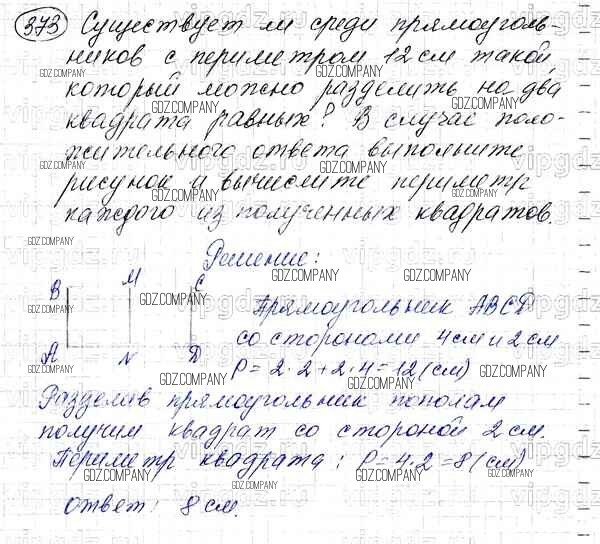 373 Существует ли среди прямоуголь-
ников с периметром 12 см такой,
который можно разделить на два
квадрата равных? В случае поло-
жительного ответа выполните
рисунок и вычислите периметр
каждого из полученных квадратов.
Решение:
B M C
A N D
Прямоугольник ABCD
со сторонами 4 см и 2 см
P = 2·2 + 2·4 = 12 (см)
Разделив прямоугольник пополам
получим квадрат со стороной 2 см.
Периметр квадрата: P = 4·2 = 8 (см)
ответ: 8 см.
GDZ.COMPANY
vipgdz.ru